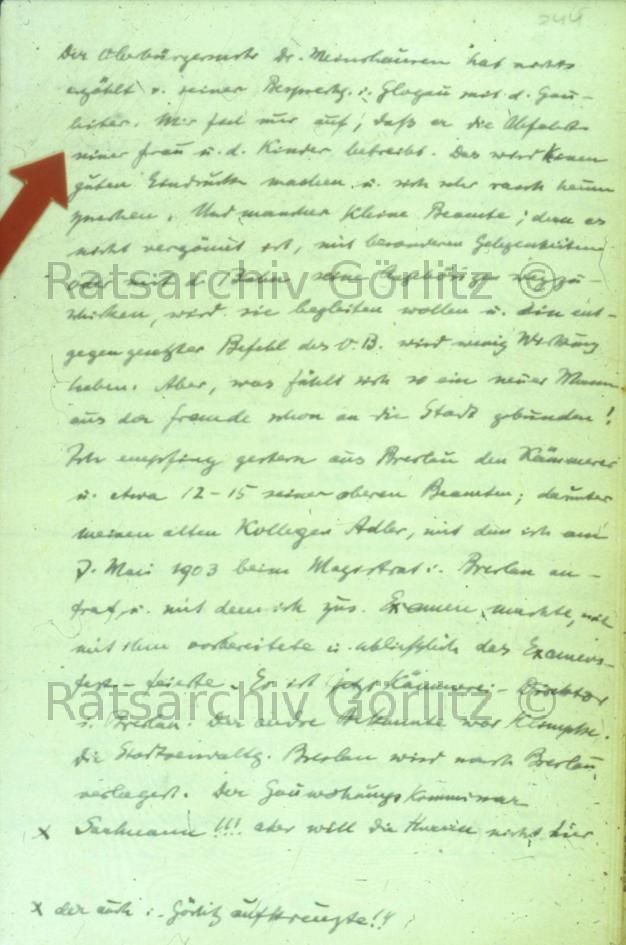 244
Der Oberbürgermstr Dr. Meinshausen hat nichts
erzählt v. seiner Besprechg. i. Glogau mit d. Gau-
leiter. Mir fiel nur auf, daß er die Abfahrt
seiner Frau u. d. Kinder betreibt. Das wird keinen
guten Eindruck machen u. sich sehr rasch herum
sprechen. Und mancher kleine Beamte, dem es
nicht vergönnt ist, mit besonderen Gelegenheiten
oder mit d. Bahn seine Angehörigen wegzu-
schicken, wird sie begleiten wollen u. ein ent-
gegengesetzter Befehl des O.B. wird wenig Wirkung
haben. Aber, was fühlt sich so ein neuer Mann
aus der Fremde schon an die Stadt gebunden!
Ich empfing gestern aus Breslau den Kämmerer
u. etwa 12-15 seiner oberen Beamten; darunter
meinen alten Kollegen Adler, mit dem ich am
Mai 1903 beim Magistrat i. Breslau an-
traf, u. mit dem ich zus. Examen machte, mich
mit ihm vorbereitete u. schließlich das Examens-
fest feierte. Er ist jetzt Kämmerei-Direktor
i. Breslau. Der andre Bekannte war
Die Stadtverwaltg. Breslau wird nach
verlagert. Der Gauwohnungskommissar
x !!! aber will die Herren nicht hier
x der auch i. Görlitz aufkreuzte!!
Ratsarchiv Görlitz ©
Ratsarchiv Görlitz ©